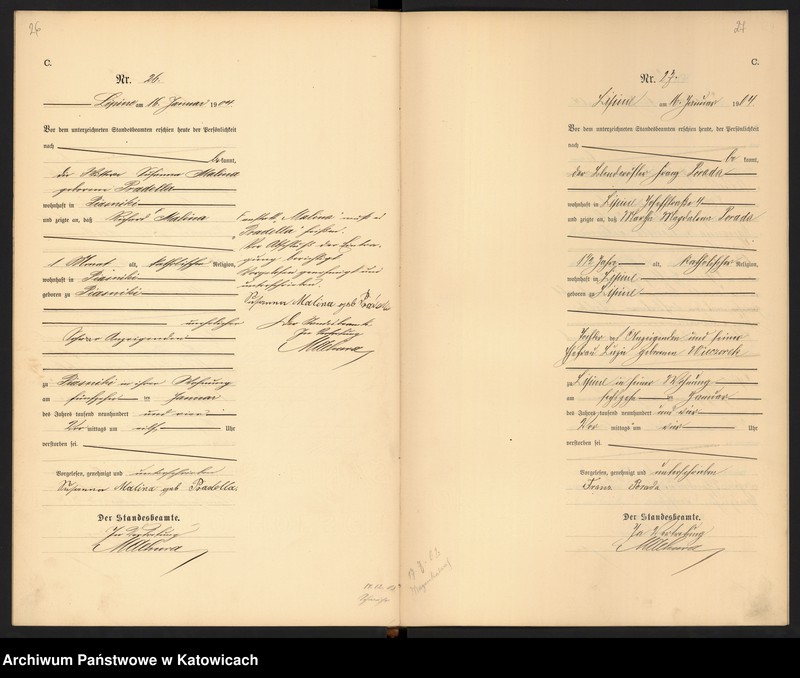 26
C.
Nr. 26.
Lipine am 16. Januar 1904.
Vor dem unterzeichneten Standesbeamten erschien heute der Persönlichkeit
nach
be kannt,
die Susanna Malina
geborene Pradella
wohnhaft in Piasniki
und zeigte an, daß Richard Malina
1 Monat alt, katholischer Religion,
wohnhaft in Piasniki
geboren zu Piasniki
unehelicher
der Anzeigenden
zu Piasniki in ihrer Wohnung
am fünfzehnten Januar
des Jahres tausend neunhundert und vier
Vor mittags um elf Uhr
verstorben sei.
Vorgelesen, genehmigt und unterschrieben
Susanna Malina geb Pradella
Der Standesbeamte.
In Vertretung
Anstatt "Malina" muß es
"Pradella" heißen.
Vorgelesen genehmigt und
unterschrieben.
Susanna Malina geb Pradella
Der Standesbeamte
In Vertretung
27
C.
Nr. 27.
Lipine am 16. Januar 1904
Vor dem unterzeichneten Standesbeamten erschien heute, der Persönlichkeit
nach
be kannt,
der Franz Porada
wohnhaft in Lipine Josefstraße 4
und zeigte an, daß Martha Magdalena Porada
1 1/2 Jahr alt, katholischer Religion,
wohnhaft in Lipine
geboren zu Lipine
Tochter des Anzeigenden und seiner
Ehefrau Luzie geborenen Wieczorek
zu Lipine in seiner Wohnung
am sechzehnten Januar
des Jahres tausend neunhundert und vier
Vor mittags um vier Uhr
verstorben sei.
Vorgelesen, genehmigt und unterschrieben
Franz Porada
Der Standesbeamte.
In Vertretung
Archiwum Państwowe w Katowicach